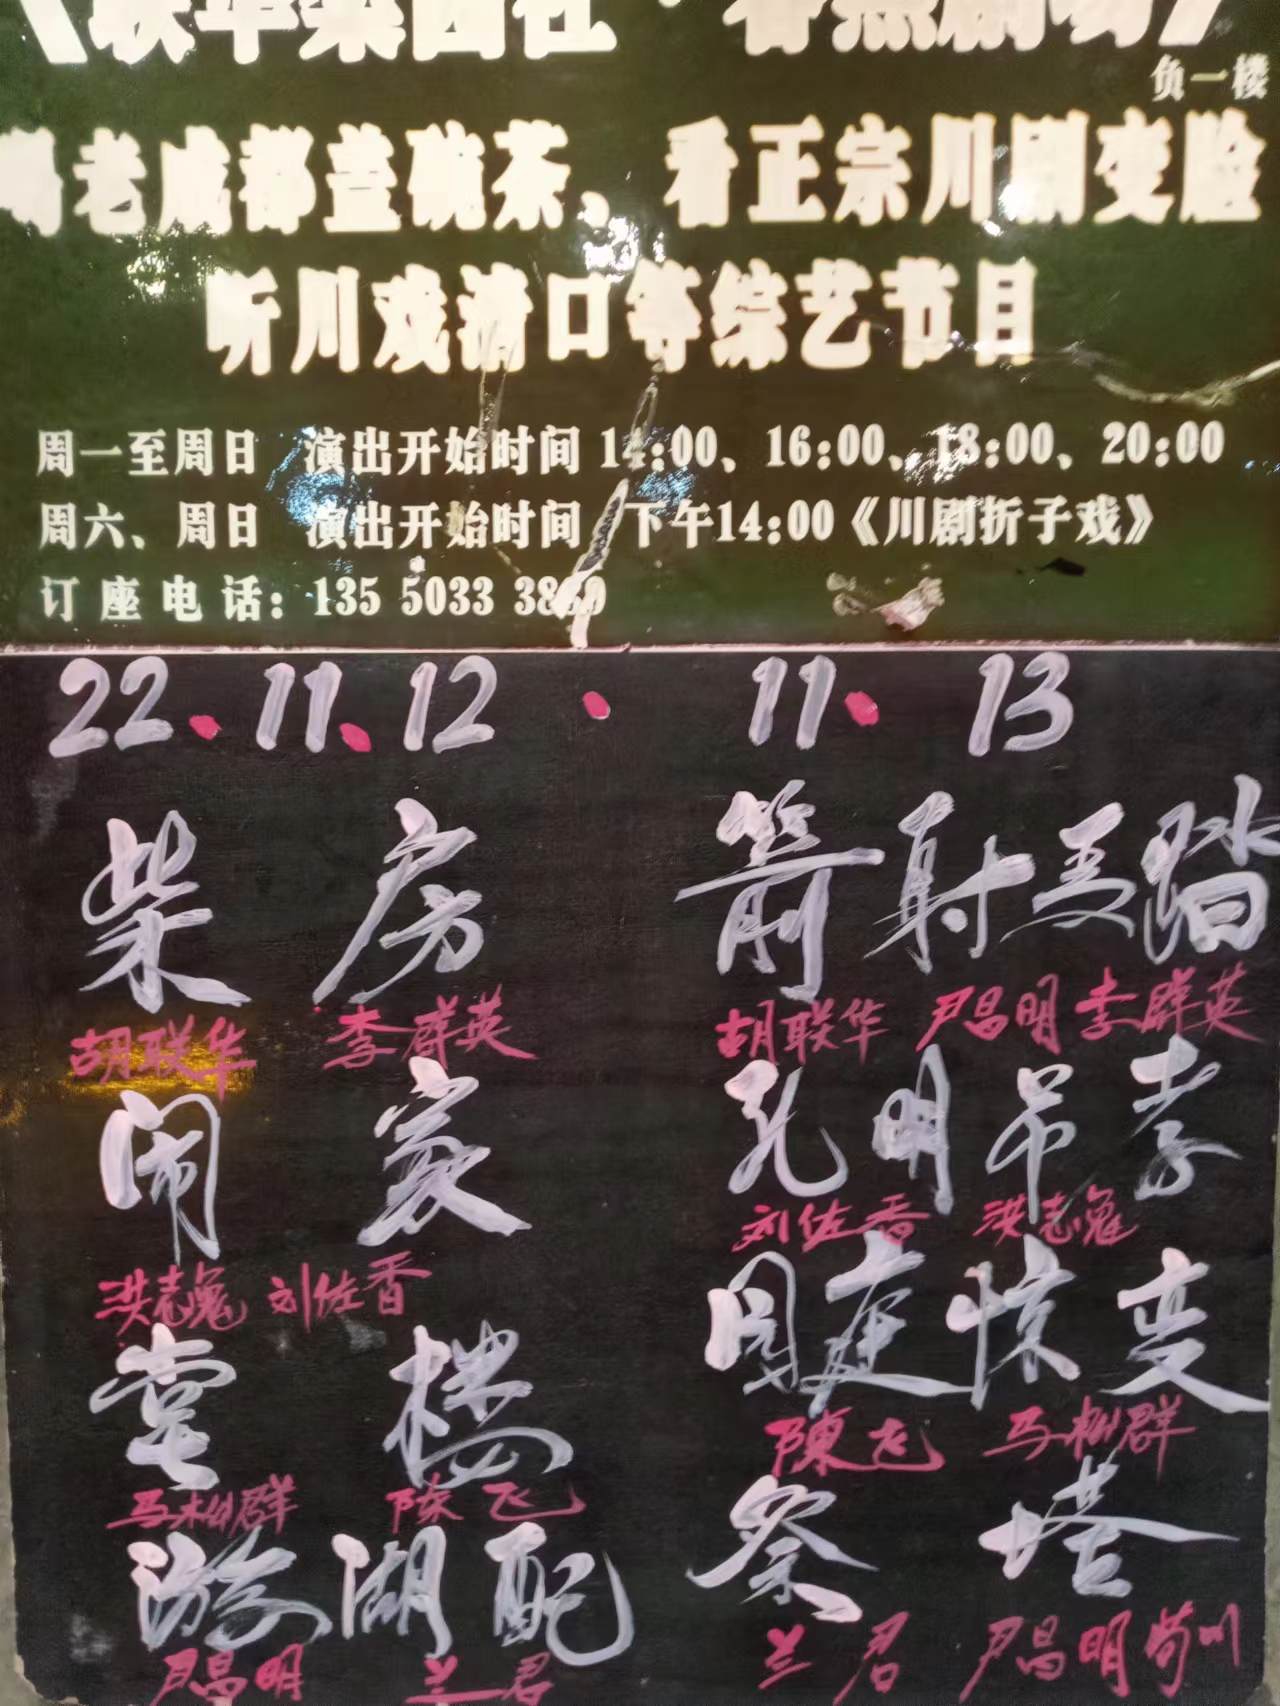 《联华梨园社·春熙剧场》
负一楼
喝老成都盖碗茶、看正宗川剧变脸
听川戏清口等综艺节目
周一至周日 演出开始时间 14:00、16:00、18:00、20:00
周六、周日 演出开始时间 下午14:00《川剧折子戏》
订座电话：135 5033
22.11.12 · 11.13
柴房
胡联华 李群英
闹宴
洪志 刘佐香
楼
马松群 陈飞
游湖配
尹昌明 兰君
箭射马踏
胡联华 尹昌明 李群英
孔明吊孝
刘佐香 洪志
庭惊变
陳飞 马松群
祭塔
兰君 尹昌明 苟川